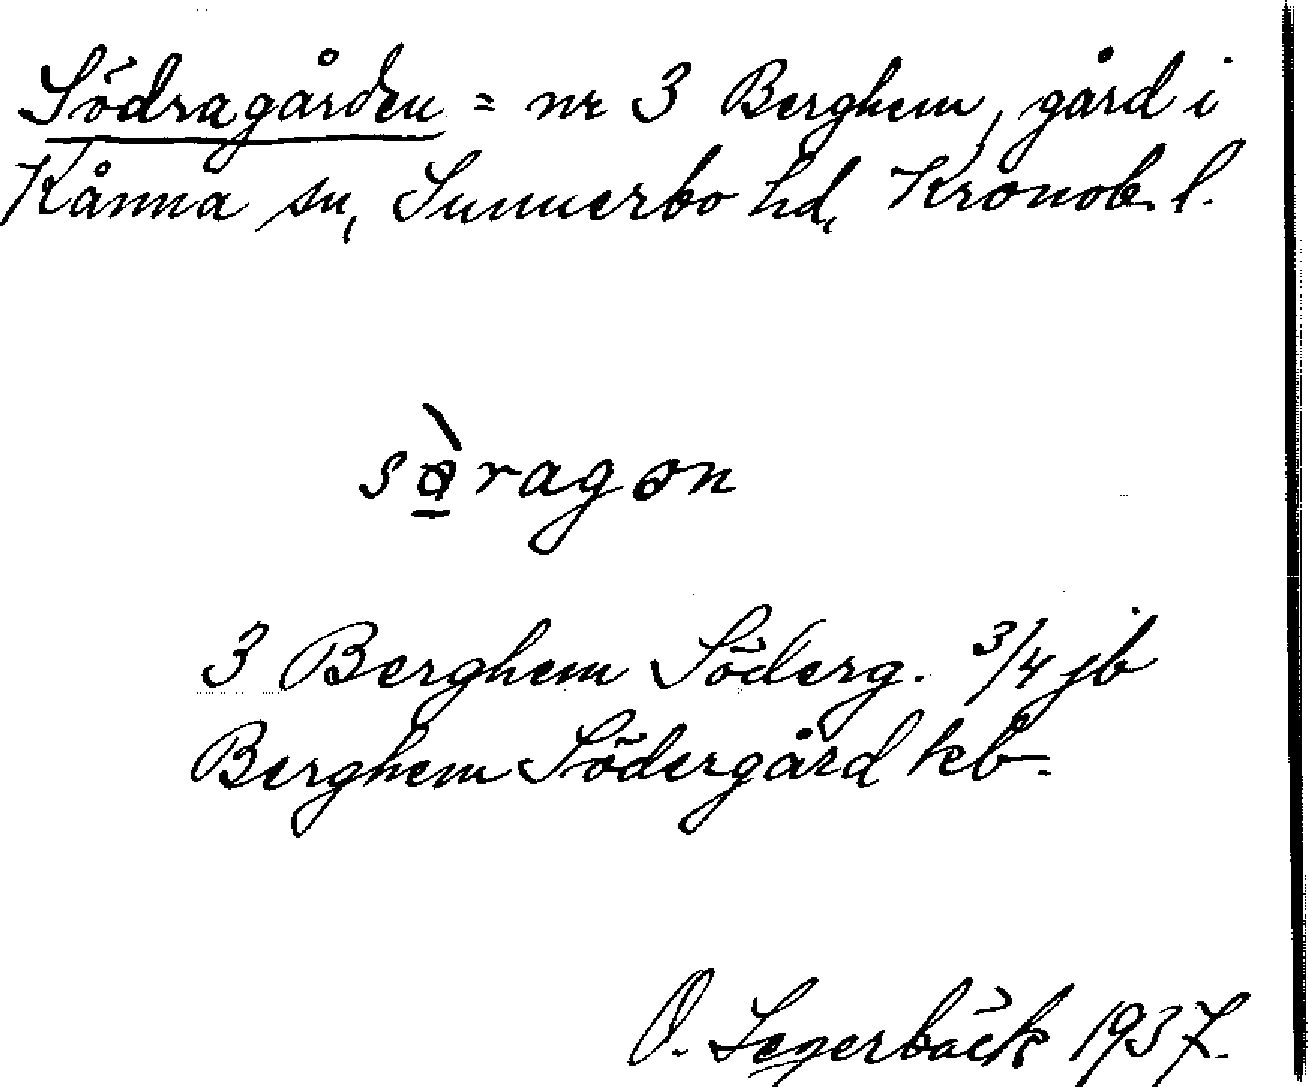 Södragården = nr 3 Berghem, gård i
Kånna sn, Sunnerbo hd, Kronob. l.
sø̠̀ragɷn
3 Berghem Söderg. 3/4 jb
Berghem Södergård kb.
O. Segerbäck 1937.